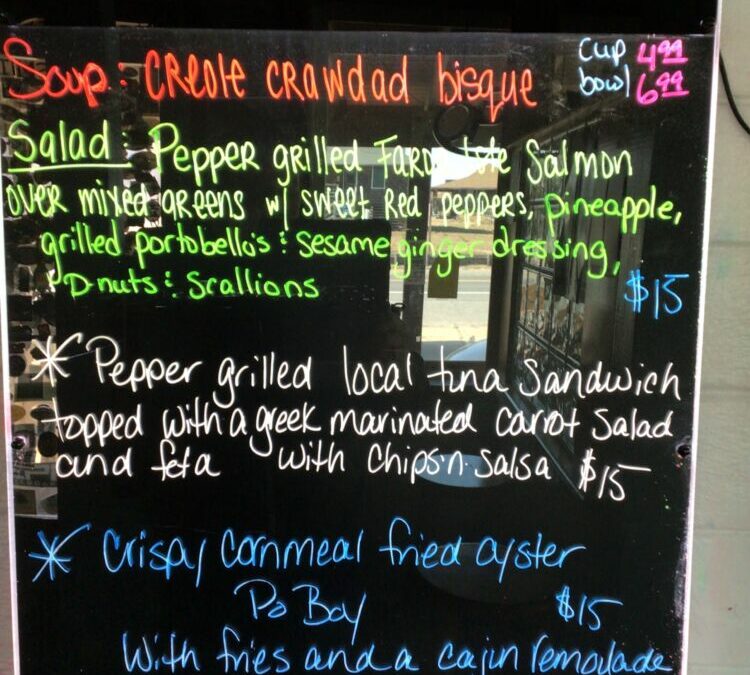 Soup: Creole crawdad bisque
cup 4.99
bowl 6.99
Salad: Pepper grilled Faroe Isle Salmon
over mixed greens w/ sweet Red peppers, pineapple,
grilled portobello's & sesame ginger dressing,
P-nuts & Scallions
$15
* Pepper grilled local tuna Sandwich
topped with a greek marinated Carrot Salad
and feta with Chips.n.Salsa $15
* Crispy Cornmeal fried oyster
Po Boy $15
With fries and a cajun remoulade